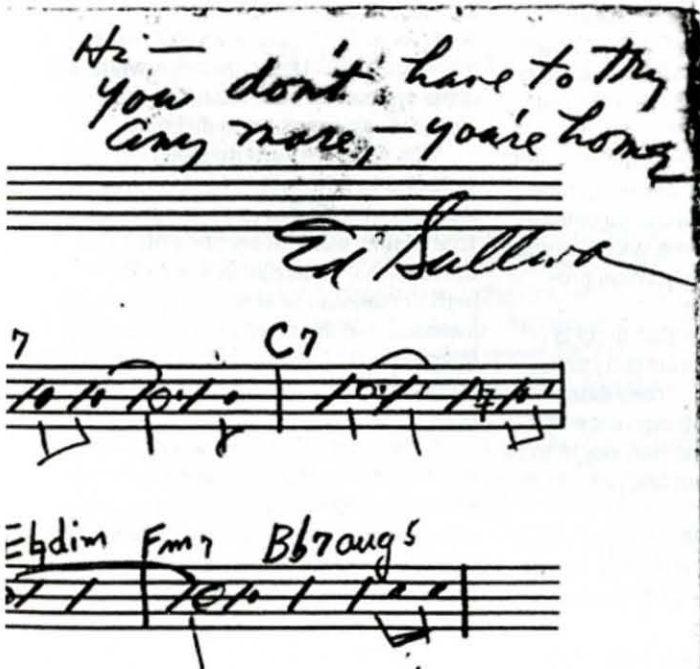 Hi —
you don't have to try
any more, — you're home
Ed Sullivan
7 C7
E♮dim Fm7 Bb7aug5